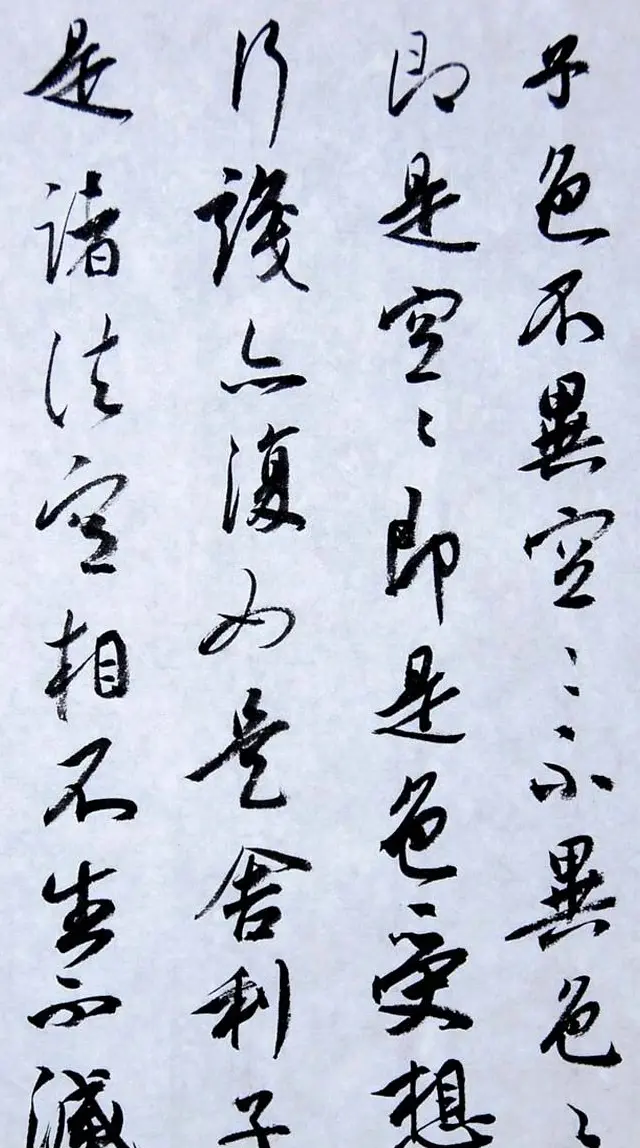 子色不異空〻不異色〻
即是空〻即是色受想
行識亦復如是舍利子
是諸法空相不生不滅